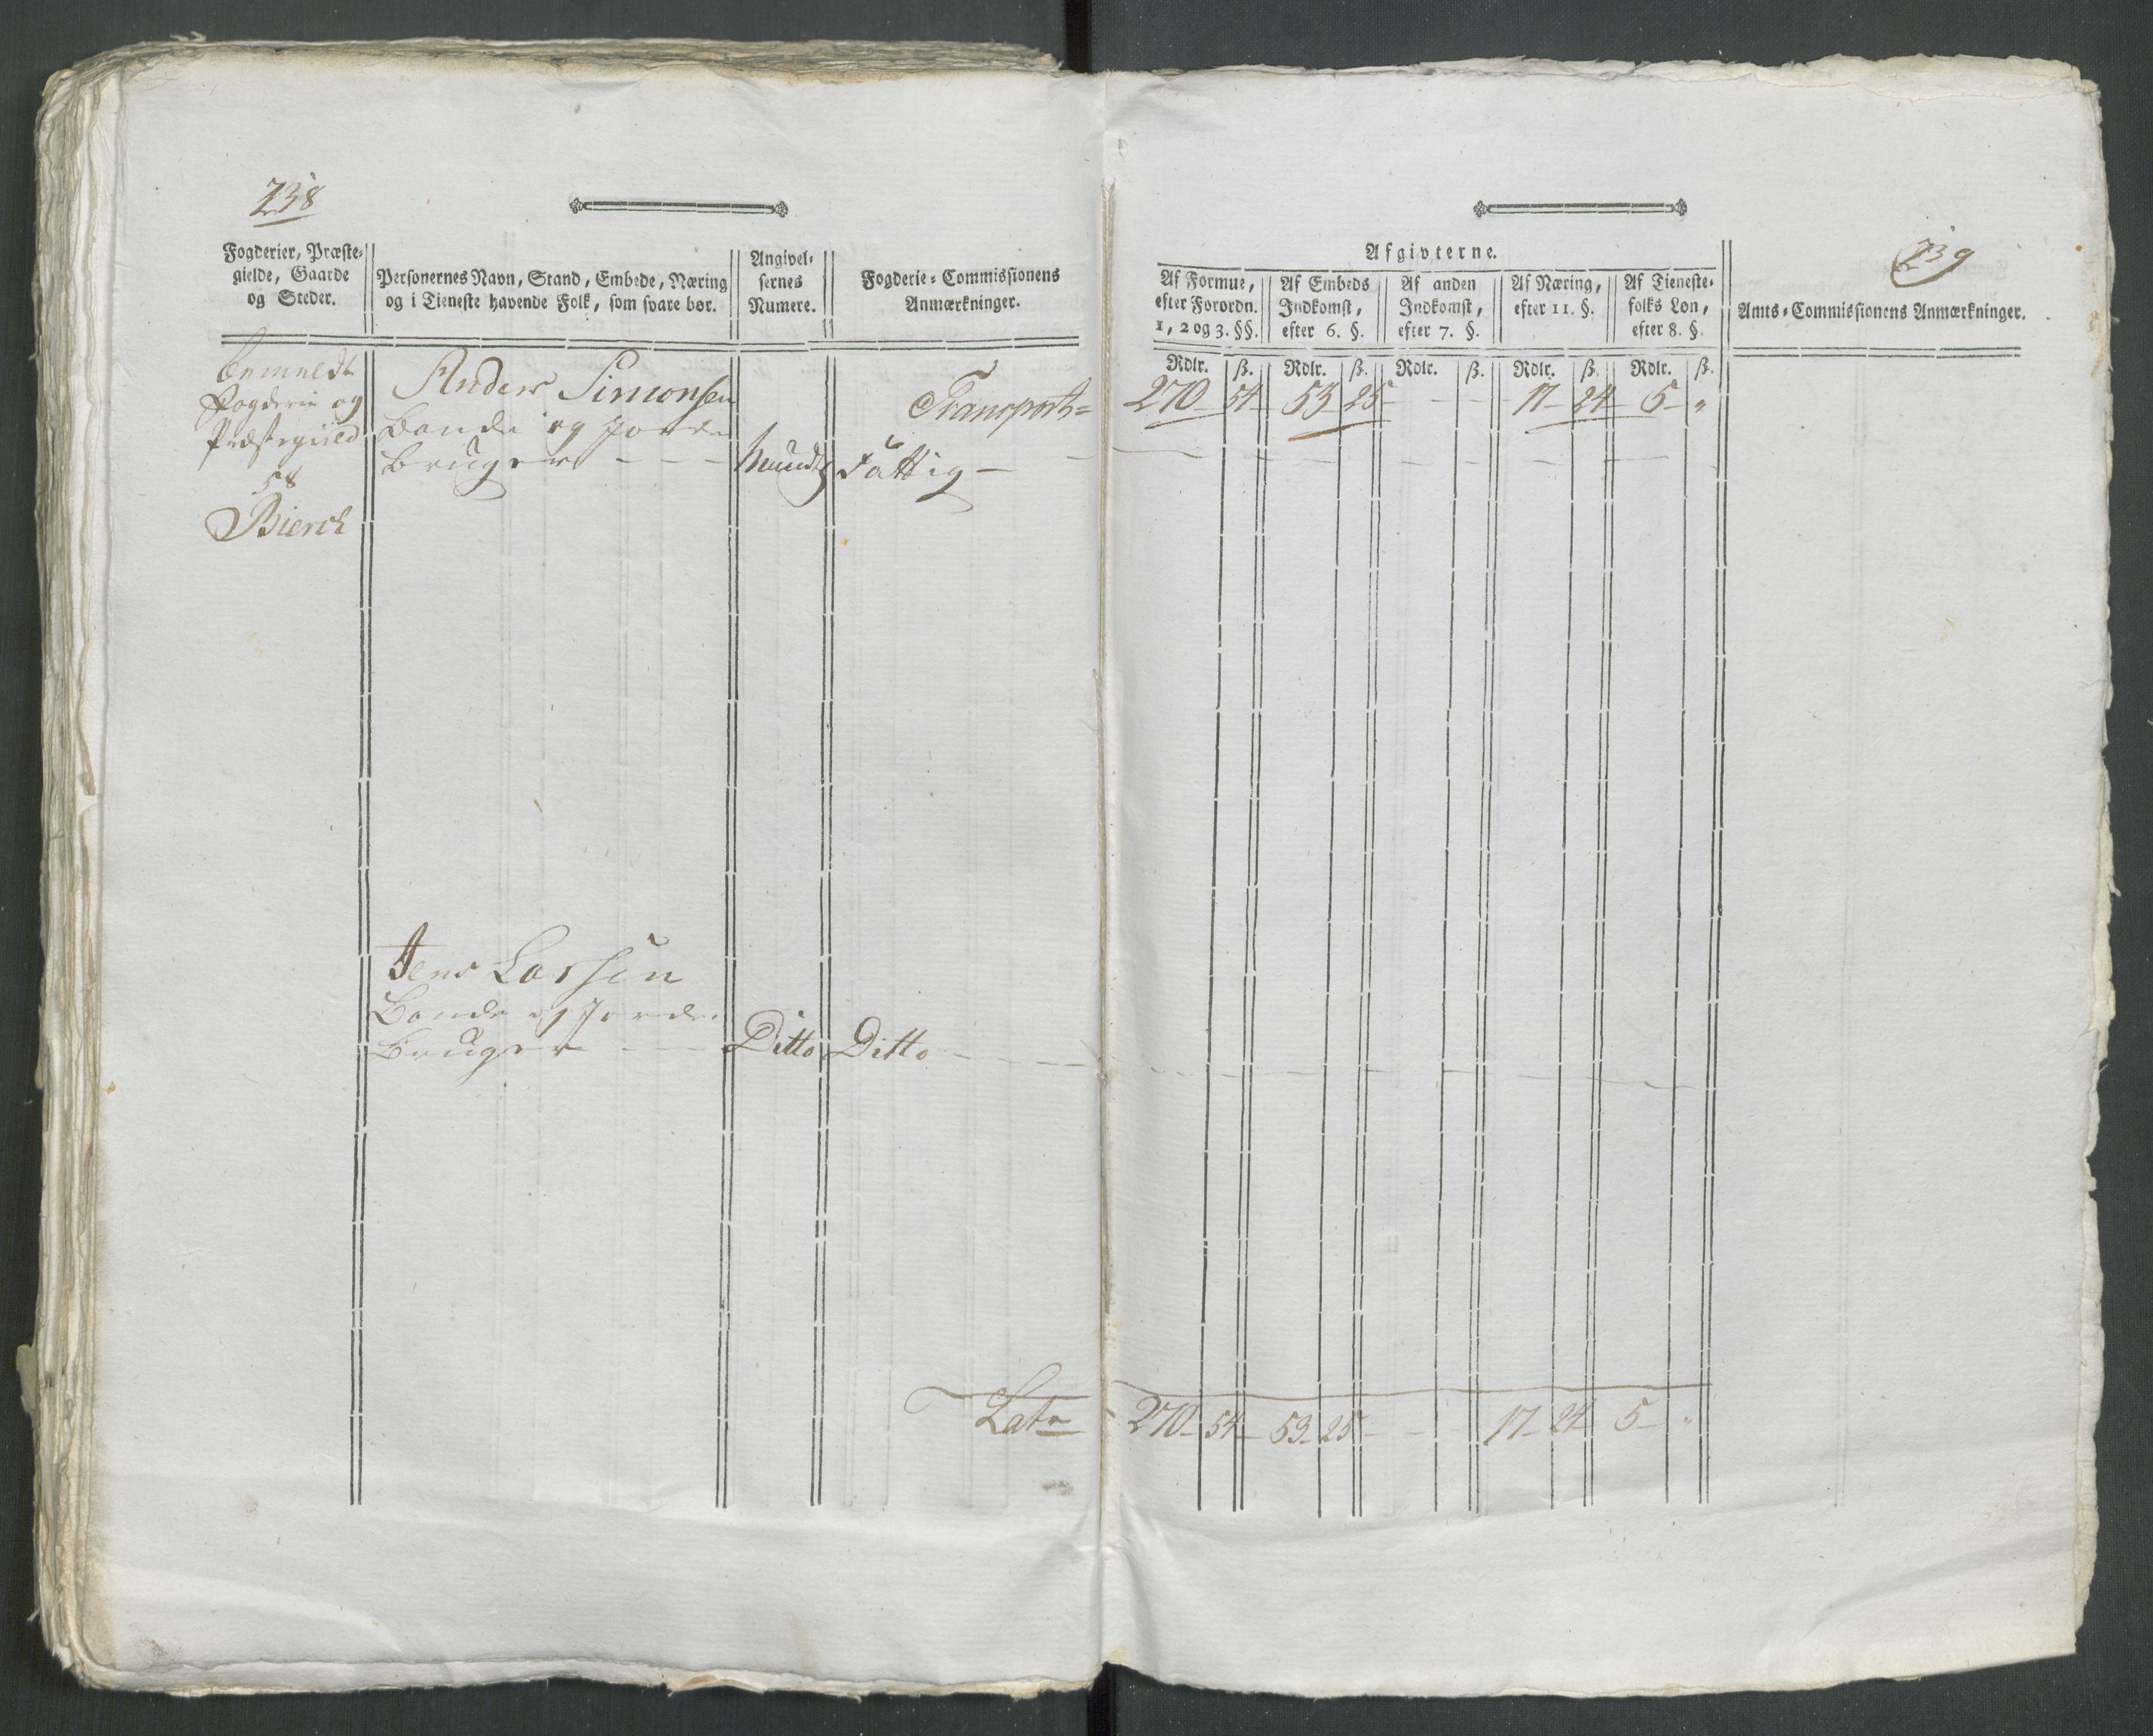 238
Fogderier, Præste-
gielde, Gaarde
og Steder.
Personernes Navn, Stand, Embede, Næring
og i Tieneste havende Folk, som svare bør.
Angivel-
sernes
Numere.
Fogderie-Commissionens
Anmærkninger.
bemeldt
Fogderie og
Præstegield
58
Bierck
Anders Simonsen
Bonde og Jorde
bruger - - -
Mundtl
Fattig -
Transport=
Jens Larsen
Bonde og Jorde
Bruger - - -
Ditto
Ditto - - -
Latr
239
Afgivterne.
Af Formue,
efter Forordn.
1, 2 og 3. §§.
Af Embeds
Indkomst,
efter 6. §.
Af anden
Indkomst,
efter 7. §.
Af Næring,
efter 11. §.
Af Tieneste-
folks Løn,
efter 8. §.
Amts-Commissionens Anmærkninger.
Rdlr. ß. Rdlr. ß. Rdlr. ß. Rdlr. ß. Rdlr. ß.
270 - 54 - 53 25 - - - 17 - 24 - 5 - "
270 - 54 - 53 - 25 - - - 17 - 24 5 - "